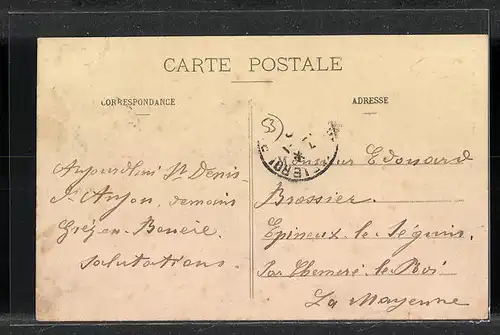 CARTE POSTALE
CORRESPONDANCE
ADRESSE
53
Aujourdhui St Denis
d'Anjou, demain
Grez-en-Bouère.
Salutations
Monsieur Edouard
Brossier
Epineux-le-Séguin.
par Chemeré-le-Roi
La Mayenne